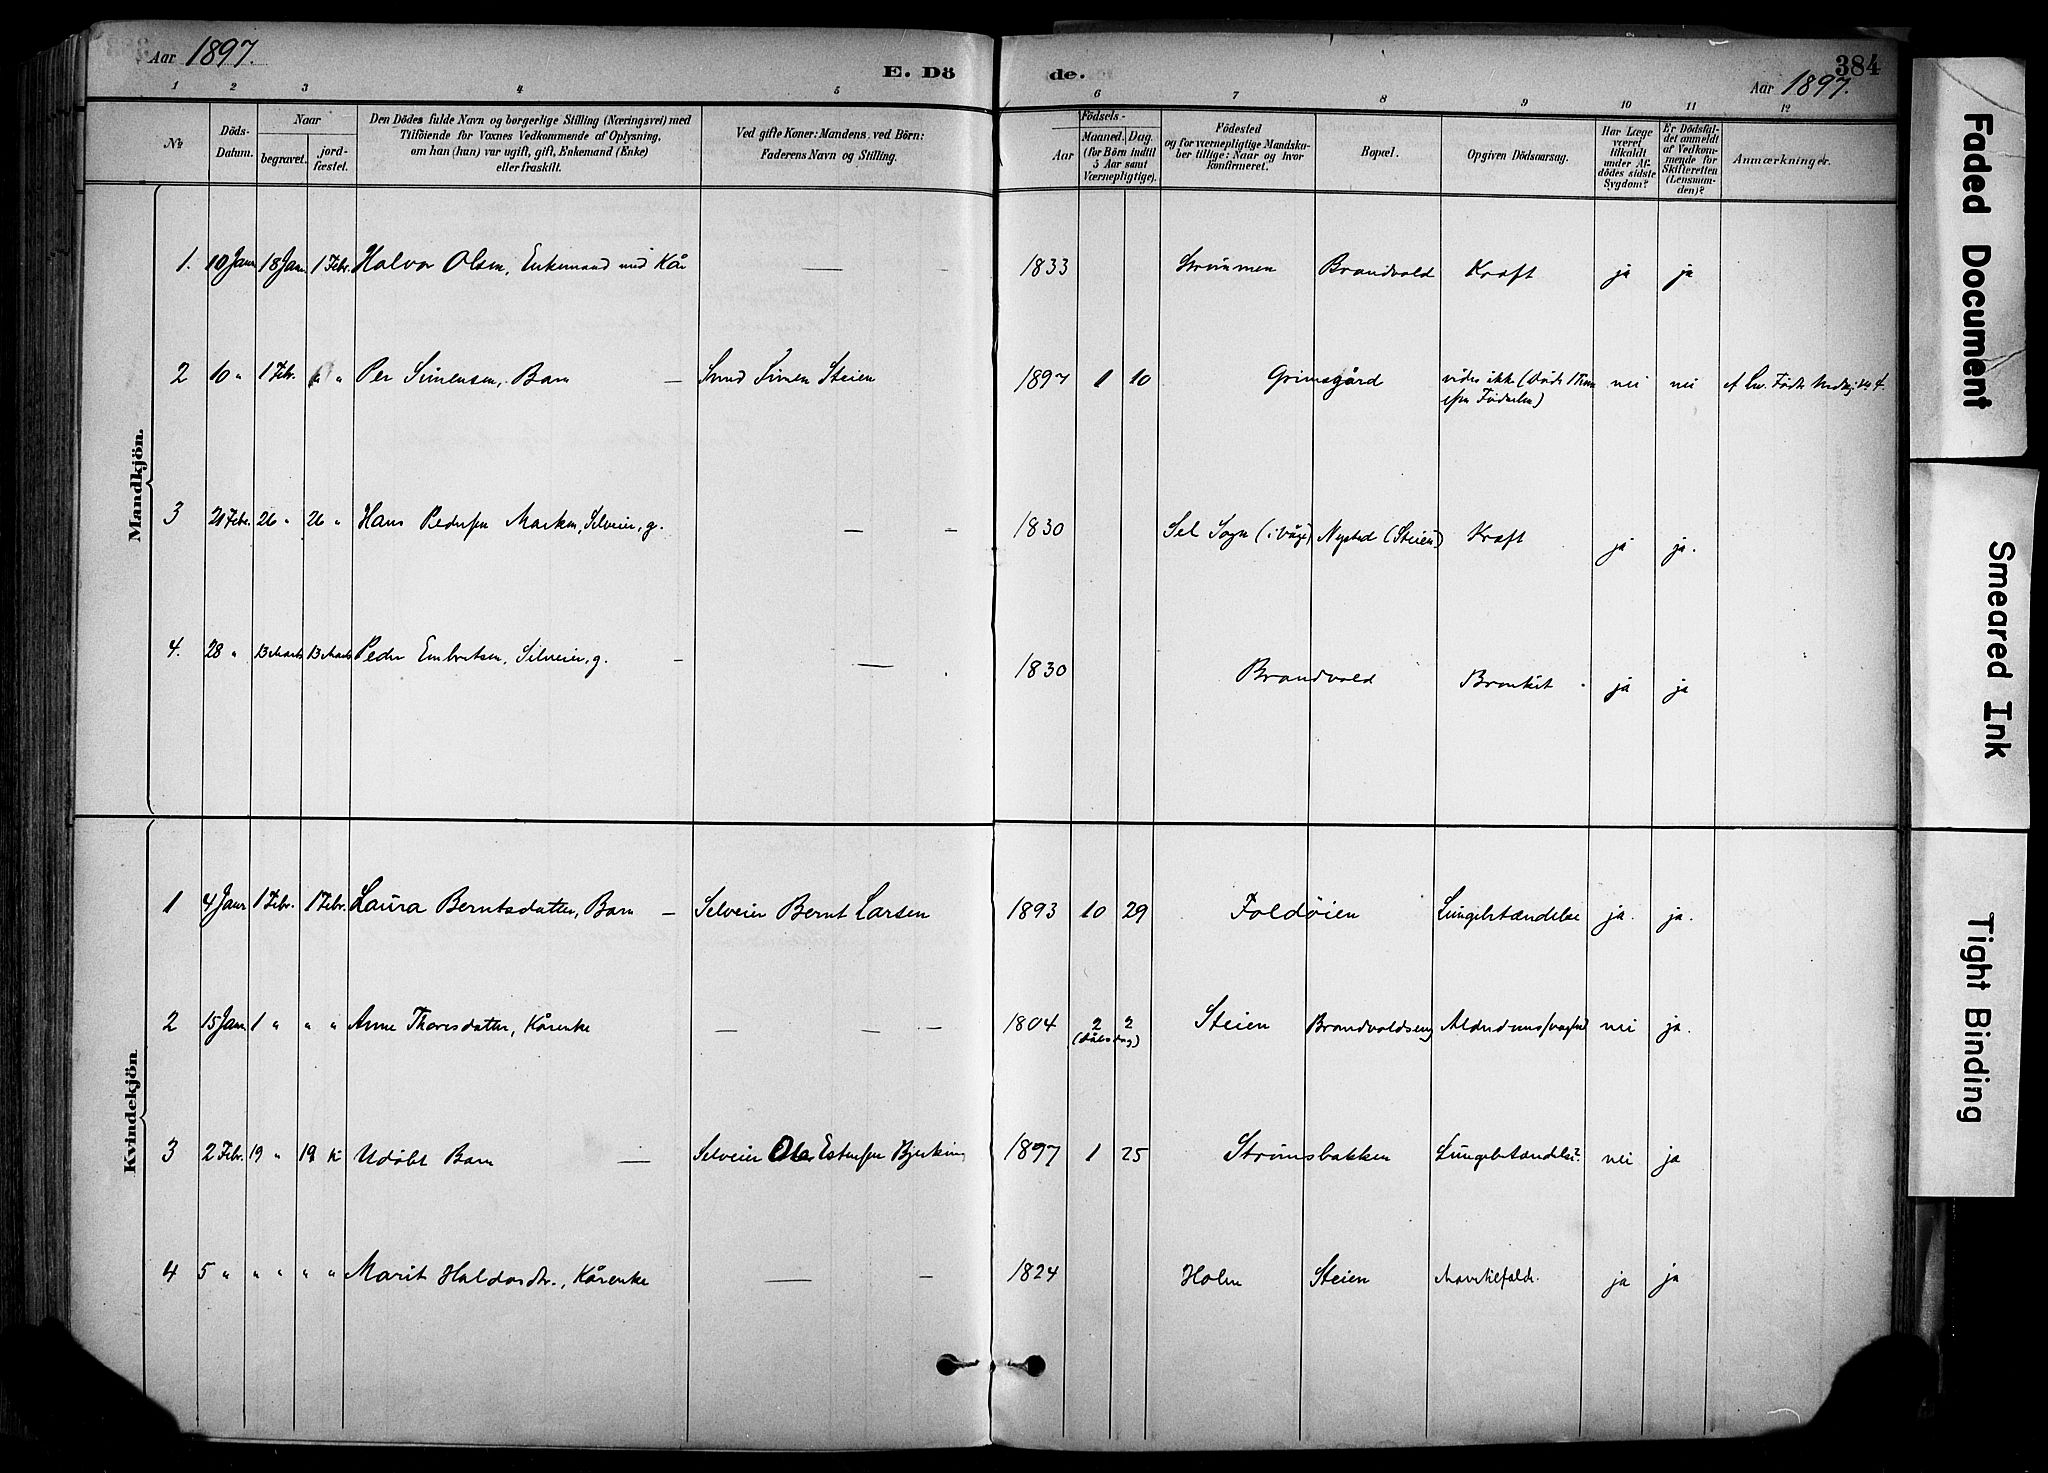 Aar 1897.
E. Dö
de.
384
Aar 1897.
1 2 3 4 5 6 7 8 9 10 11 12
№
Döds-Datum.
Naar
begravet.
jord-fæstet.
Den Dödes fulde Navn og borgerlige Stilling (Næringsvei) med
Tilföiende for Voxnes Vedkommende af Oplysning,
om han (hun) var ugift, gift, Enkemand (Enke)
eller fraskilt.
Ved gifte Koner: Mandens, ved Börn:
Faderens Navn og Stilling.
Födsels-
Aar
Maaned. Dag.
(for Börn indtil
5 Aar samt
Værnepligtige).
Födested
og for værnepligtige Mandska-
ber tillige: Naar og hvor
konfirmeret.
Bopæl.
Opgiven Dödsaarsag.
Har Læge
været
tilkaldt
under Af-
dödes sidste
Sygdom?
Er Dödsfal-
det anmeldt
af Vedkom-
mende for
Skifteretten
(Lensman-
den)?
Anmærkninger.
Mandkjön.
1. 10 Janr 18 Jan. 1 Febr. Halvor Olsen, Enkemand med Kår — 1833 Strømmen Brandvold Kræft ja ja
2 10 " 1 Febr. " " Per Simensen, Barn — Smed Simen Steien 1897 1 10 Grimsgård vides ikke (Døde 1 Time
efter Fødselen) nei nei
3 21 Febr. 26 " 26 " Hans Pedersen Marken, Selveier, g. — — 1830 Sel Sogn (i Våge) Nysted (Steien) Kræft ja ja.
4. 28 " 13 Marts 13 Marts Peder Embretsen, Selveier, g. — — 1830 Brandvold Bronkit. ja ja
Kvindekjön.
1 4 Janr 1 Febr. 1 Febr. Laura Berntsdatter, Barn — Selveier Bernt Larsen 1893 10 29 Foldøien Lungebetændelse ja. ja.
2 15 Jan. 1 " " " Anne Thoresdatter, Kårenke — — — 1804 2 2
(dåbsdag) Steien Brandvoldseng nei ja.
3 2 Febr. 19 " 19 " Udøbt Barn — Selveier Ole Estensen Bjørking 1897 1 25 Strømsbakken Lungebetændelse? nei ja
4 5 " " " " " Marit Haldosdtr., Kårenke — — 1824 Holm Steien ja ja
Faded Document
Smeared Ink
Tight Binding